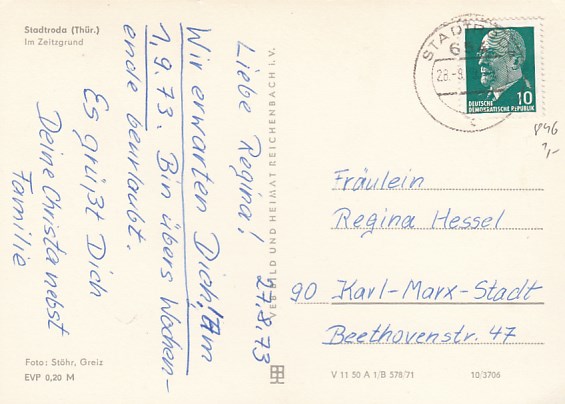 Stadtroda (Thür.)
Im Zeitzgrund
27.8.73
Liebe Regina!
Wir erwarten Dich, Am
1.9.73. Bin übers Wochen-
ende beurlaubt.
Es grüßt Dich
Deine Christa nebst
Familie
Foto: Stöhr, Greiz
EVP 0,20 M
VEB BILD UND HEIMAT REICHENBACH I. V.
STADTRODA
28.-9.
DEUTSCHE
DEMOKRATISCHE REPUBLIK
10
1,-
Fräulein
Regina Hessel
90 Karl-Marx-Stadt
Beethovenstr. 47
V 11 50 A 1/B 578/71
10/3706